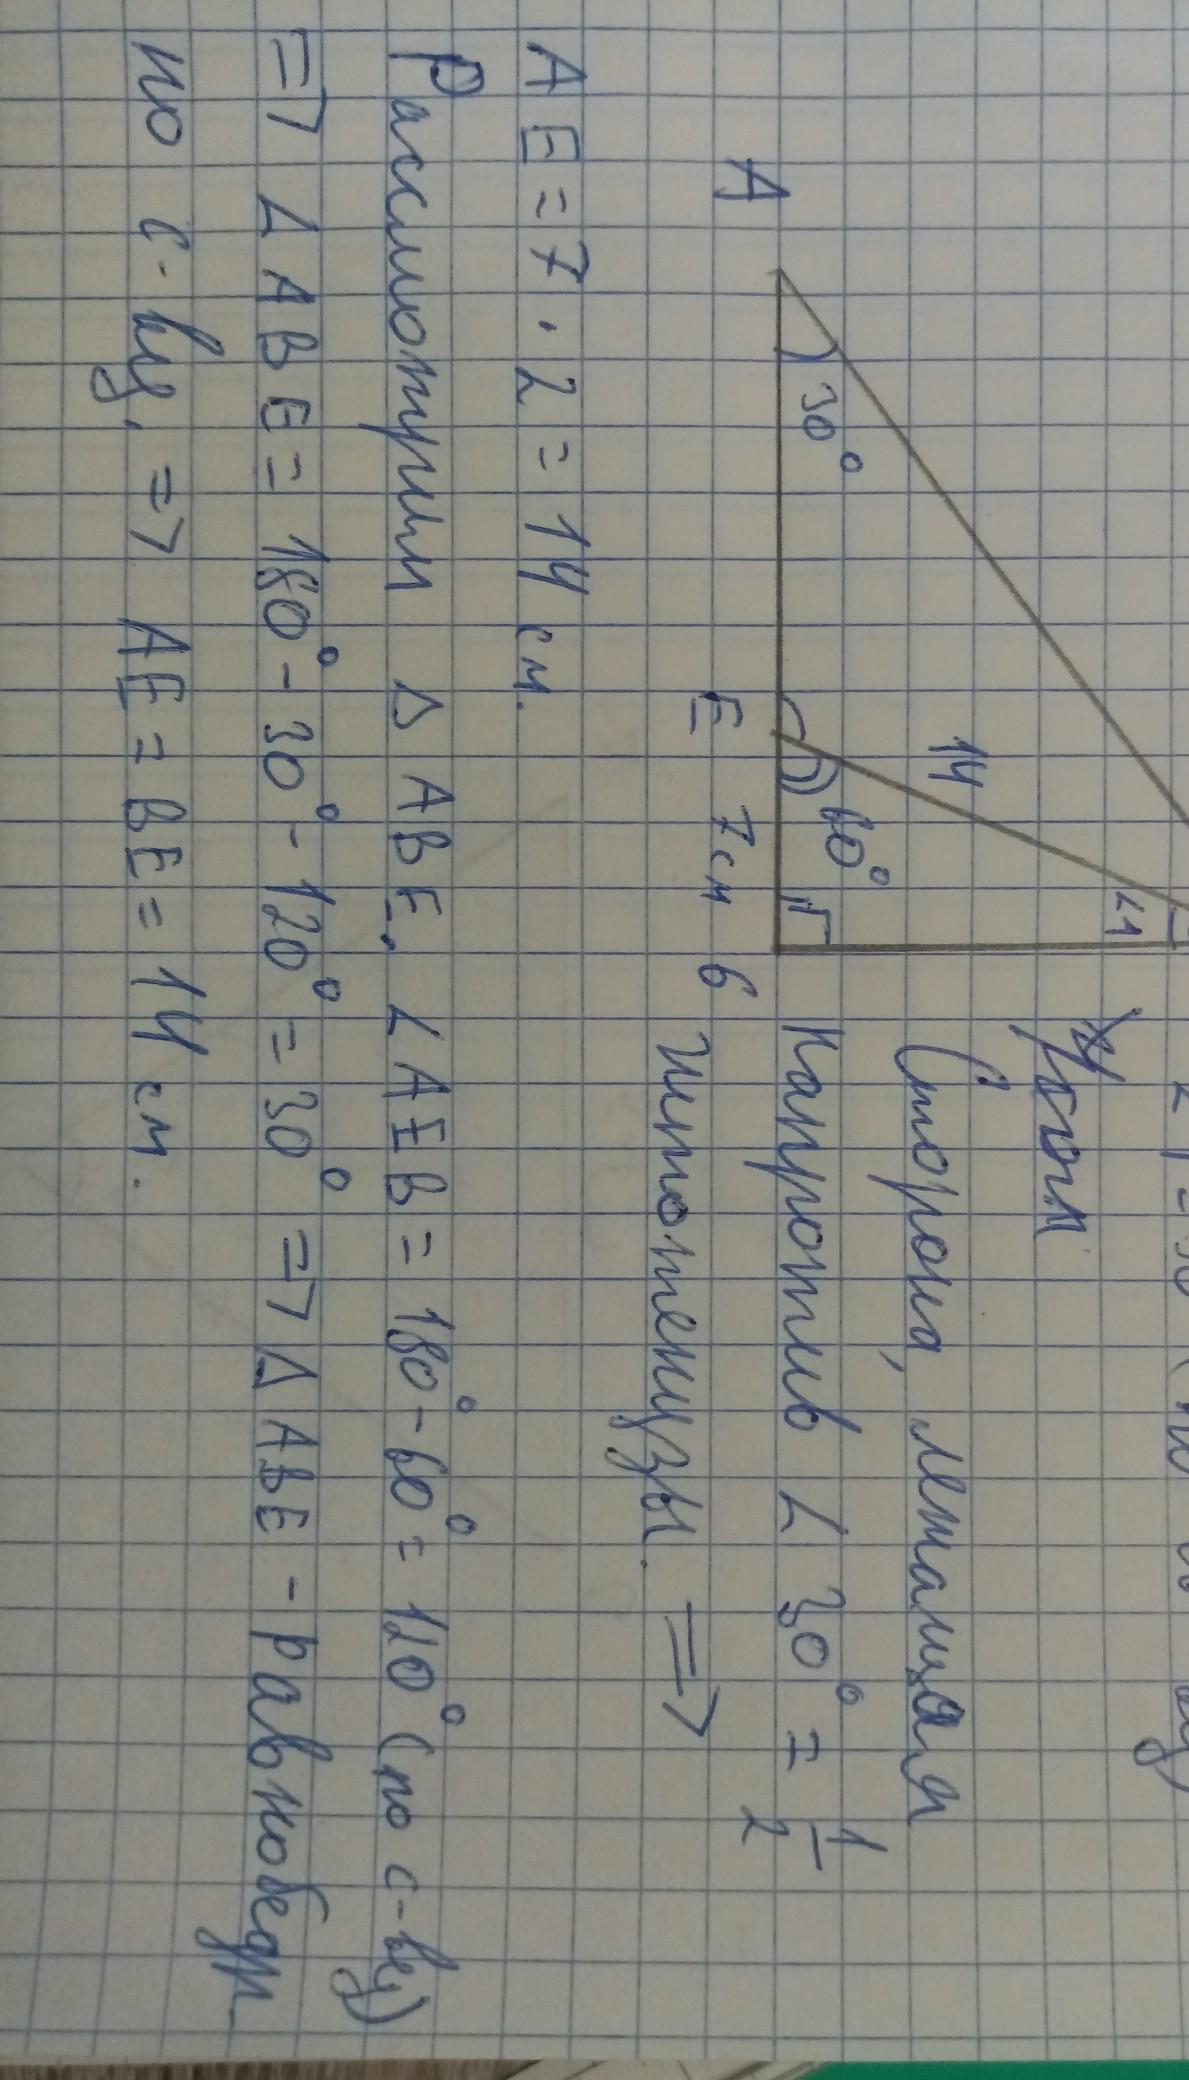 ∠1 = 30° (по
Угол
Сторона, лежащая
напротив ∠ 30° = 1/2
гипотенузы. =>
A
30°
E
7см
6
14
60°
∠1
AE = 7 · 2 = 14 см.
Рассмотрим △ ABE. ∠ AEB = 180° - 60° = 120° (по с-ву)
=> ∠ ABE = 180° - 30° - 120° = 30° => △ ABE - равнобедр.
по с-ву, => AE = BE = 14 см.